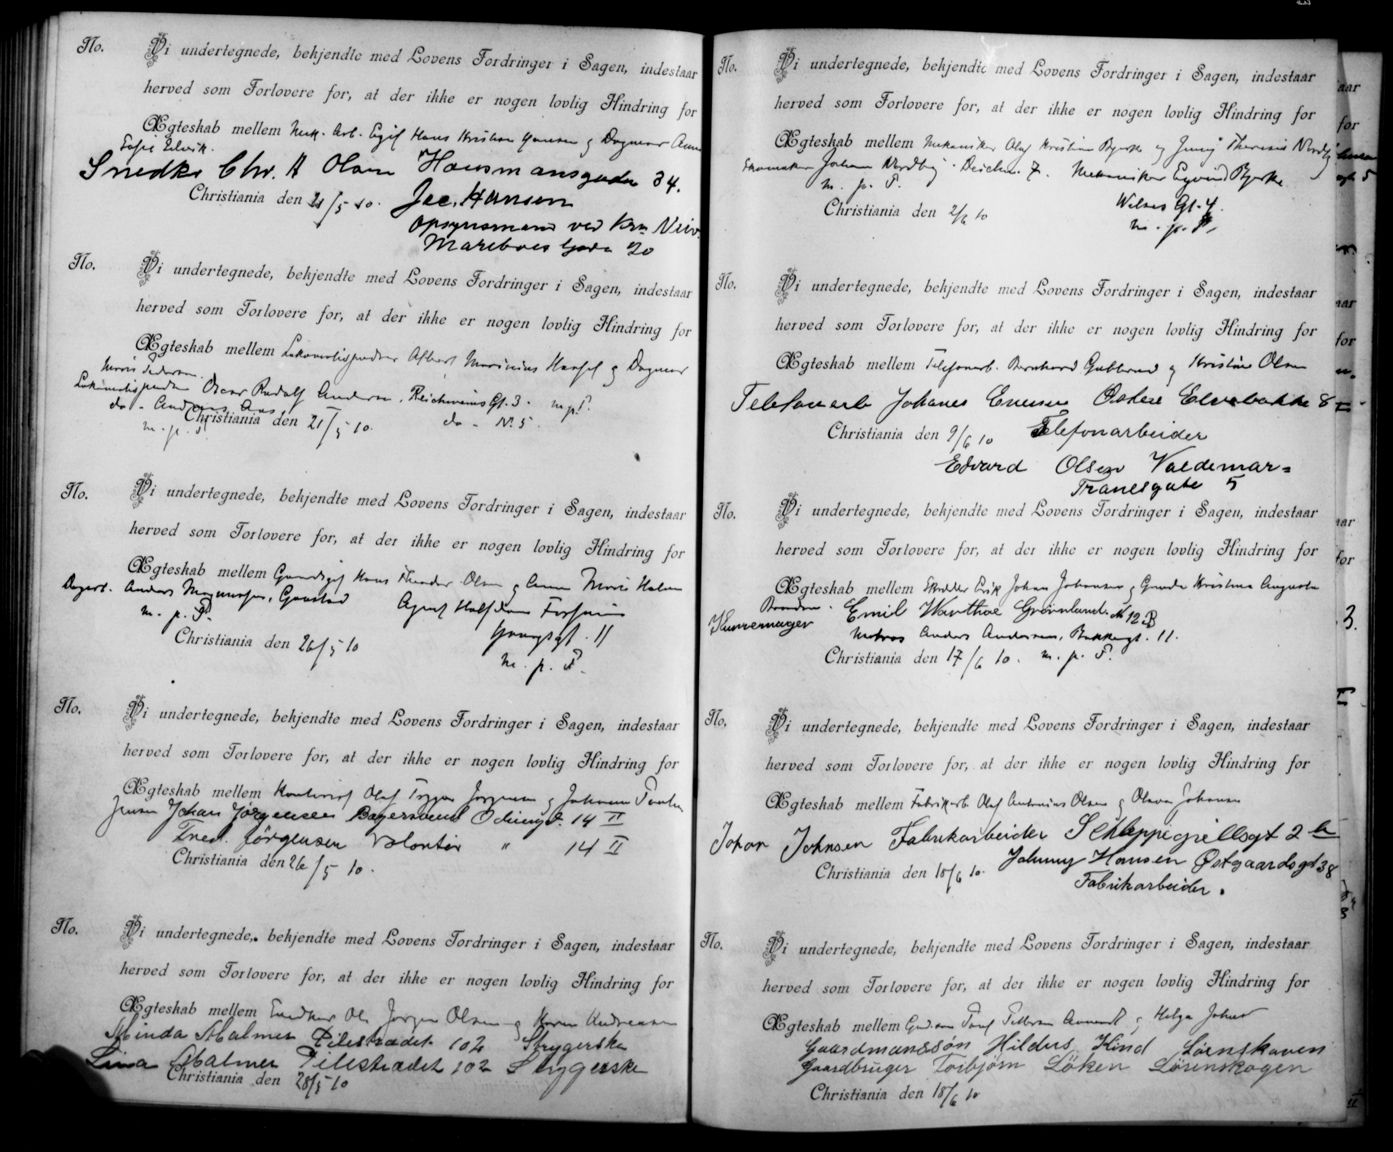 No. Vi undertegnede, bekjendte med Lovens Fordringer i Sagen, indestaar
herved som Forlovere for, at der ikke er nogen lovlig Hindring for
Ægteskab mellem Hans Kristian Hansen og Dagmar Anna
Sofie
Snedker Chr. A Olsen Hausmansgade 34.
Christiania den 21/5 10. Jac. Hansen
Opsynsmand ved
Mariboes Gade 20
No. Vi undertegnede, bekjendte med Lovens Fordringer i Sagen, indestaar
herved som Forlovere for, at der ikke er nogen lovlig Hindring for
Ægteskab mellem Albert Marinius og Dagmar
Marie Pedersen.
Oscar Rudolf Andersen, Reichweins Gt. 3. m.p.F.
do - Andreas Aas, do - No. 5.
m. p. F. Christiania den 21/5 10.
No. Vi undertegnede, bekjendte med Lovens Fordringer i Sagen, indestaar
herved som Forlovere for, at der ikke er nogen lovlig Hindring for
Ægteskab mellem Hans Theodor Olsen og Anna Marie Holm
Anders Magnussen, Gaustad Agent Halfdan
m. p. F. 11
Christiania den 26/5 10 m. p. F.
No. Vi undertegnede, bekjendte med Lovens Fordringer i Sagen, indestaar
herved som Forlovere for, at der ikke er nogen lovlig Hindring for
Ægteskab mellem Kontorist Olaf Trygve Jørgensen og Johanna
Jensen Johan Jørgensen Bagersvend Odinsgt. 14 II
Fred. Jørgensen Volontør " 14 II
Christiania den 26/5 10.
No. Vi undertegnede, bekjendte med Lovens Fordringer i Sagen, indestaar
herved som Forlovere for, at der ikke er nogen lovlig Hindring for
Ægteskab mellem Snedker Ole Jørgen Olsen og Karen Andreassen
Minda Malmer Pilestrædet 102 Strygerske
Lina Malmer Pilestrædet 102 Strygerske
Christiania den 28/5 10
No. Vi undertegnede, bekjendte med Lovens Fordringer i Sagen, indestaar
herved som Forlovere for, at der ikke er nogen lovlig Hindring for
Ægteskab mellem Mekaniker Olaf Kristian Bjerke og Jenny Theresie Nordby
Skomaker Johan Nordby - Deichm. 7. Mekaniker Eyvind Bjerke
m. p. F. Wilses Gt. 4.
Christiania den 2/6 10 m. p. F.
No. Vi undertegnede, bekjendte med Lovens Fordringer i Sagen, indestaar
herved som Forlovere for, at der ikke er nogen lovlig Hindring for
Ægteskab mellem Telefonarb. Bernhard Gulbrand og Kristine Olsen
Telefonarb Johanes Enersen Østere Elvebakke 8 II
Christiania den 9/6 10 Telefonarbeider
Edvard Olsen Valdemar=
Tranesgate 5
No. Vi undertegnede, bekjendte med Lovens Fordringer i Sagen, indestaar
herved som Forlovere for, at der ikke er nogen lovlig Hindring for
Ægteskab mellem Skrædder Erik Johan Johansen og Gunda Kristina Augusta
Brandon. Emil Grønland No 12 B
Kurvemager Anders Andersen, Bakkegt. 11.
Christiania den 17/6 10. m. p. F.
No. Vi undertegnede, bekjendte med Lovens Fordringer i Sagen, indestaar
herved som Forlovere for, at der ikke er nogen lovlig Hindring for
Ægteskab mellem Fabrikarb Olaf Antonius Olsen og Johansen
Johan Johnsen Fabrikarbeider Schleppegrellsgt 2
Christiania den 18/6 10. Johnny Hansen Østgaardsgt 38
Fabrikarbeider.
No. Vi undertegnede, bekjendte med Lovens Fordringer i Sagen, indestaar
herved som Forlovere for, at der ikke er nogen lovlig Hindring for
Ægteskab mellem og Helga
Gaardmanssøn Hildus Kind Lørnskoven
Gaardbruger Torbjørn Løken Lørenskogen
Christiania den 18/6 10